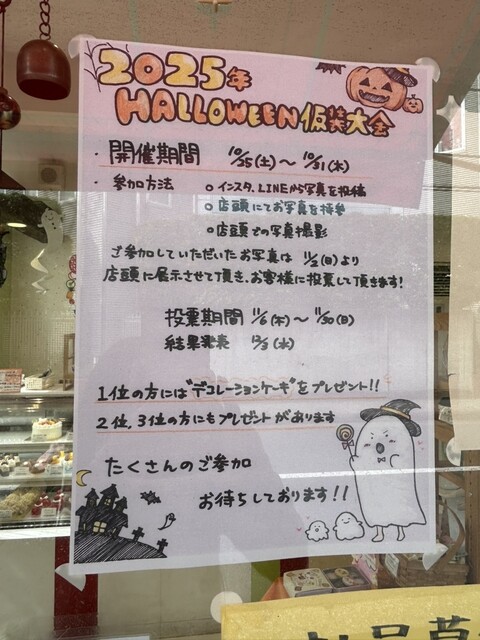 2025年
HALLOWEEN仮装大会
・開催期間 10/25(土)～10/31(木)
・参加方法 ○インスタ、LINEから写真を投稿
○店頭にてお写真を持参
○店頭での写真撮影
ご参加していただいたお写真は 11/2(日)より
店頭に展示させて頂き、お客様に投票して頂きます!
投票期間 11/6(木)～11/30(日)
結果発表 12/3(水)
1位の方には"デコレーションケーキ"をプレゼント!!
2位、3位の方にもプレゼントがあります
たくさんのご参加
お待ちしております!!